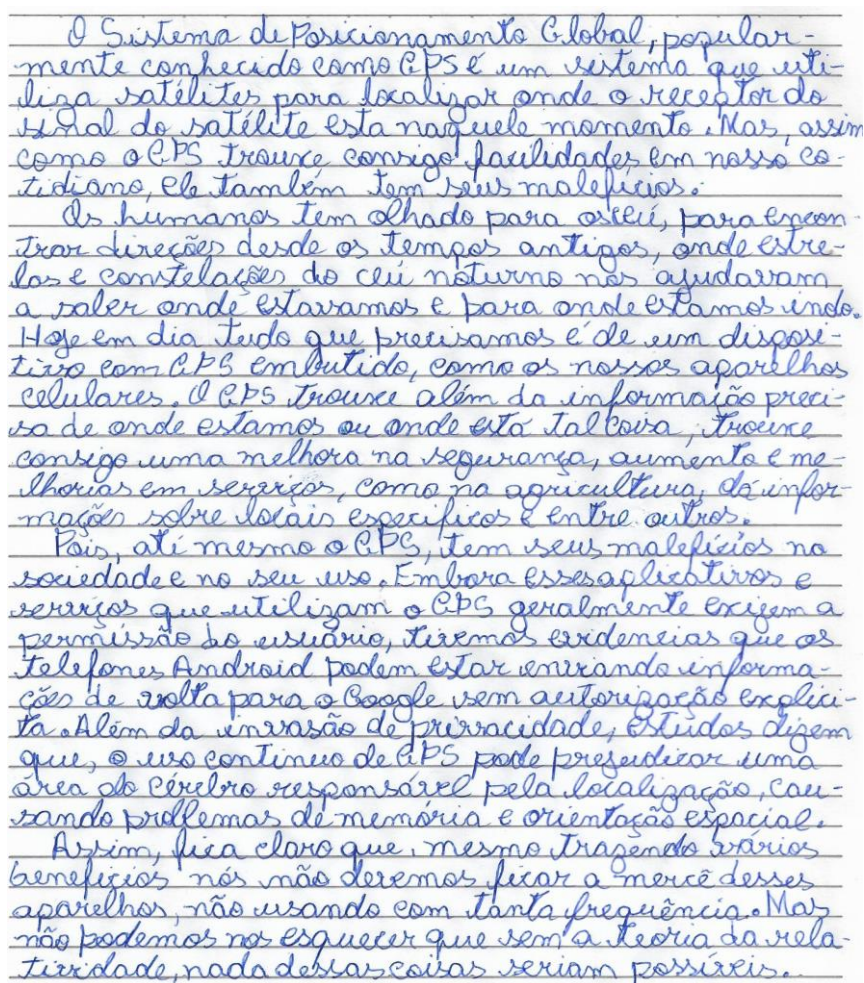 O Sistema de Posicionamento Global, popular-
mente conhecido como GPS é um sistema que uti-
liza satélites para localizar onde o receptor do
sinal do satélite esta naquele momento. Mas, assim
como o GPS trouxe consigo facilidades em nosso co-
tidiano, ele também tem seus malefícios.
Os humanos tem olhado para os ceú, para encon
trar direções desde os tempos antigos, onde estre-
las e constelações do ceú noturno nos ajudavam
a saber onde estavamos e para onde estamos indo.
Hoje em dia tudo que precisamos é de um disposi-
tivo com GPS embutido, como os nossos aparelhos
celulares. O GPS trouxe além da informaião preci-
sa de onde estamos ou onde está tal coisa, trouxe
consigo uma melhora na segurança, aumento e me-
lhorias em serviços, como na agricultura, dá infor-
mações sobre locais especificos e entre outros.
Pois, até mesmo o GPS, tem seus malefízios na
sociedade e no seu uso. Embora esses aplicativos e
serviços que utilizam o GPS geralmente exigem a
permissão do usuário, tivemos evidencias que os
telefones Android podem estar enviando informa-
ções de volta para o Google sem autorização explici-
ta. Além da invasão de privacidade, estudos dizem
que, o uso continuo de GPS pode prejudicar uma
área do cérebro responsável pela localização, cau-
sando problemas de memória e orientação espacial.
Assim, fica claro que, mesmo trazendo vários
benefízios nós não devemos ficar a mercê desses
aparelhos, não usando com tanta frequência. Mas
não podemos nos esquecer que sem a teoria da rela-
tividade, nada dessas coisas seriam possíveis.